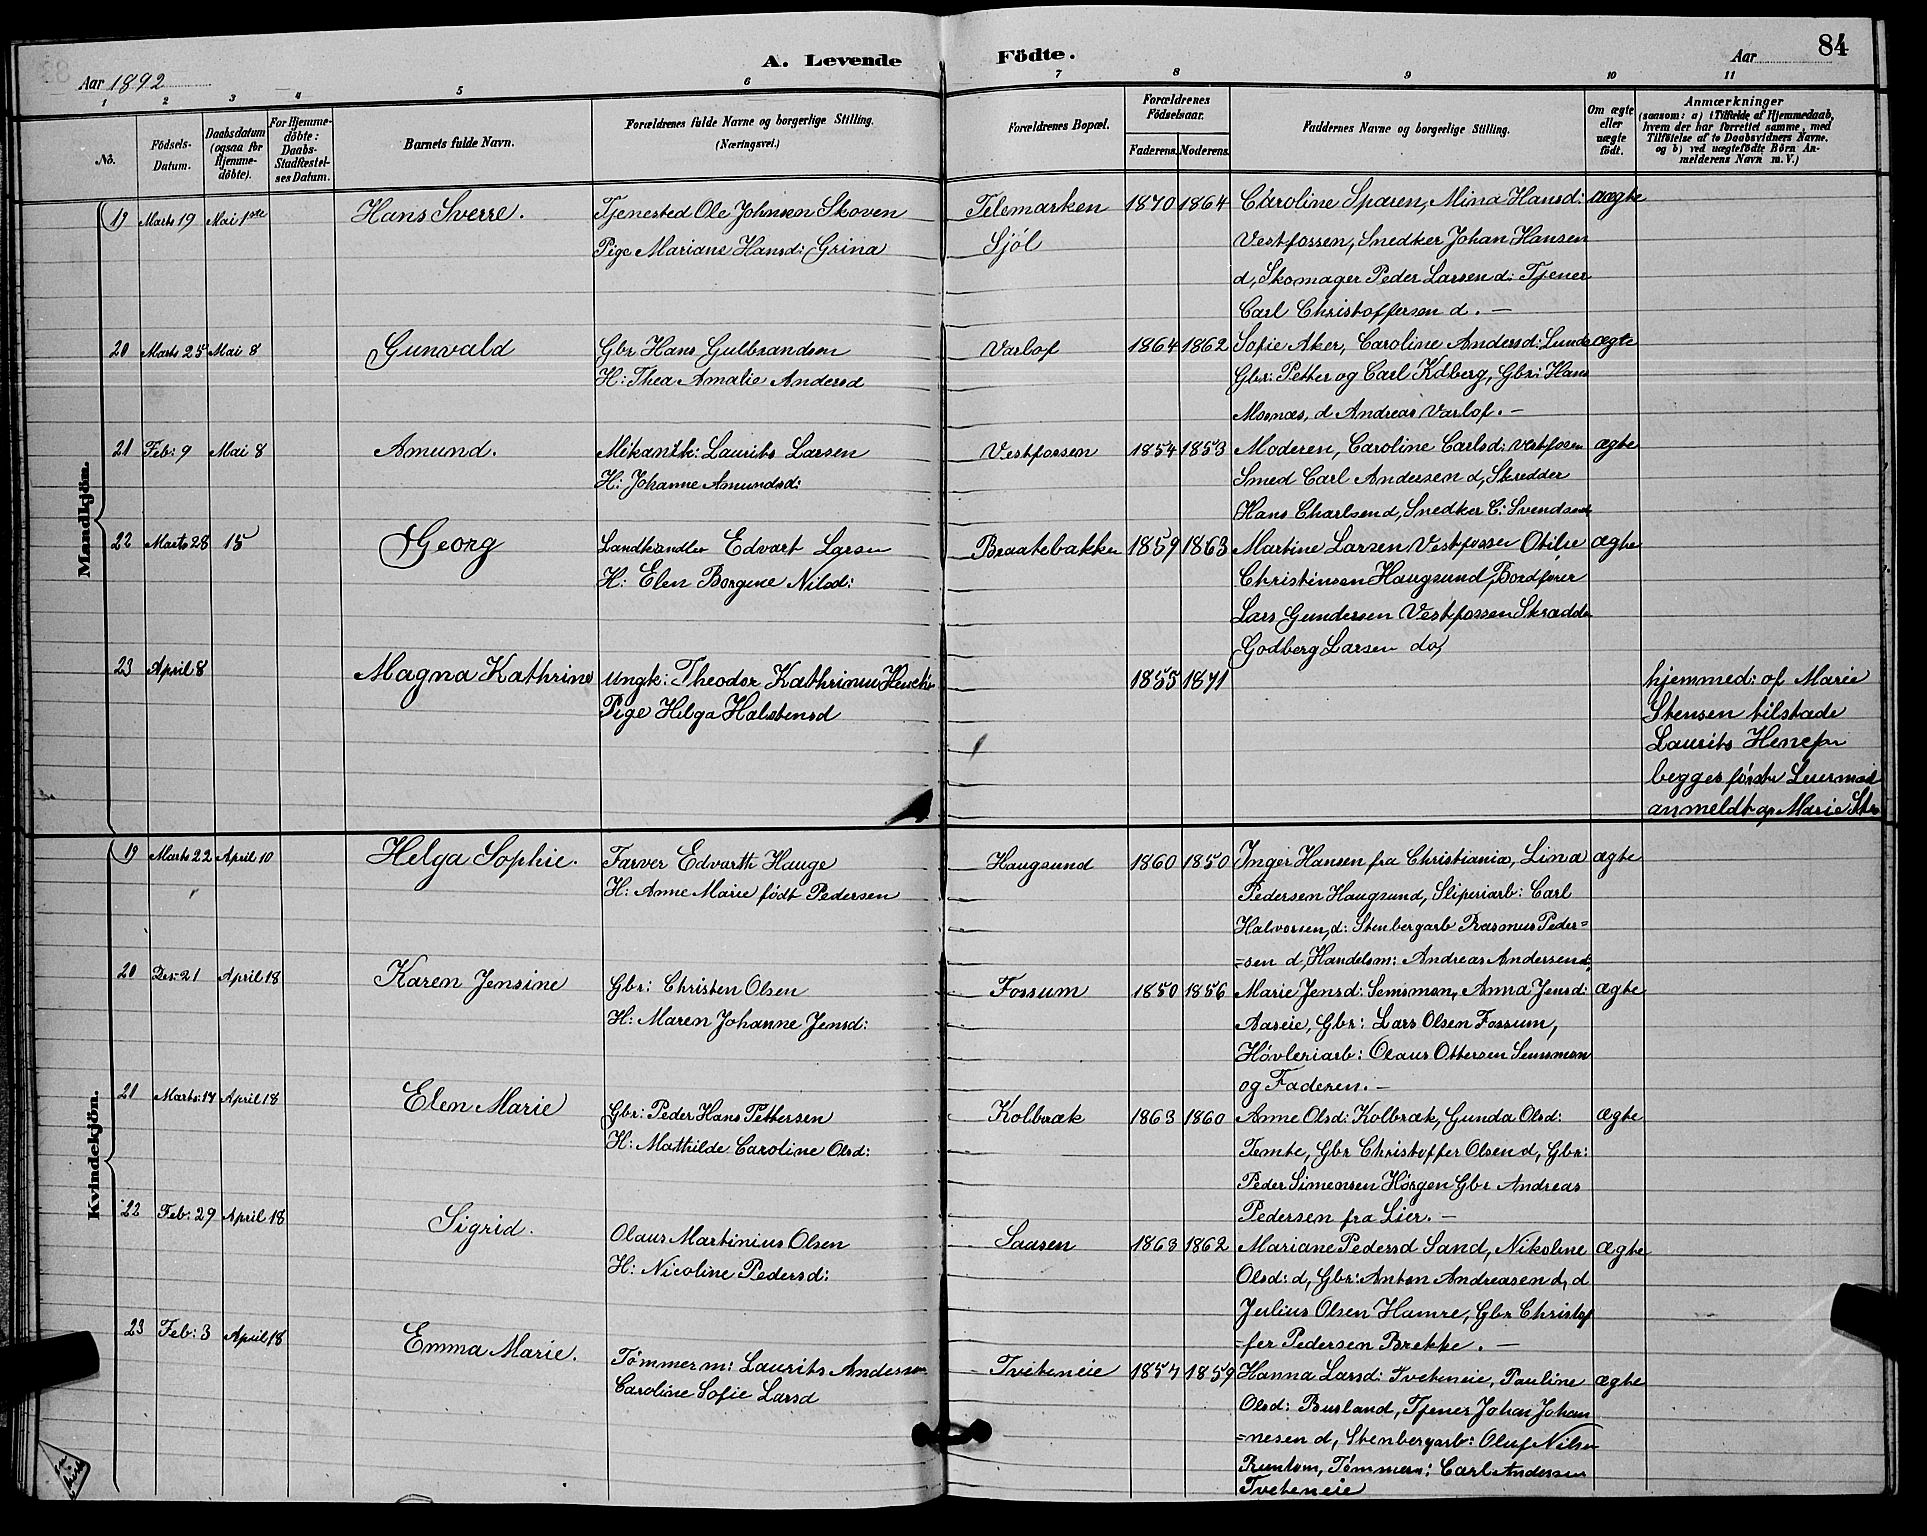 A. Levende Födte.
84
Aar 1892
Aar
1 2 3 4 5 6 7 8 9 10 11
No.
Födsels-Datum.
Daabsdatum (ogsaa for Hjemme-döbte).
For Hjemme-döbte: Daabs-Stadfæstel-ses Datum.
Barnets fulde Navn.
Forældrenes fulde Navne og borgerlige Stilling. (Næringsvei.)
Forældrenes Bopæl.
Forældrenes Födselsaar.
Faderens. Moderens.
Faddernes Navne og borgerlige Stilling.
Om ægte eller uægte födt.
Anmærkninger
(saasom: a) i Tilfælde af Hjemmedaab,
hvem der har forrettet samme, med
Tilföielse af to Daabsvidners Navne.
og b) ved uægtefödte Börn An-
melderens Navn m. V.)
Mandkjön.
19 Marts 19 Mai 1ste Hans Sverre. Tjenested Ole Johnsen Skoven Telemarken 1870 1864 Caroline Sparen, Mina Hansd: uægte
Pige Mariane Hansd: Grina Sjöl Vestfossen, Snedker Johan Hansen
d, Skomager Peder Larsen d: Tjener
Carl Christoffersen d. —
20 Marts 25 Mai 8 Gunvald Gbr Hans Gulbrandsen Varlof 1864 1862 Sofie Aker, Caroline Andersd: Lunde ægte
H: Thea Amalie Andersd Gbr: Petter og Carl Kdberg, Gbr: Hans
Mosnæs, d Andreas Varlof. —
21 Feb: 9 Mai 8 Amund. Mekanik: Laurits Larsen Vestfossen 1854 1853 Moderen, Caroline Carlsd: Vestfossen ægte
H: Johanne Amundsd: Smed Carl Andersen d, Skredder
Hans Charlsen d, Snedker C: Svendsen
22 Marts 28 15 Georg Landhandler Edvart Larsen Braatebakken 1859 1863 Martine Larsen Vestfossen Otilie ægte
H: Elen Borgine Nilsd: Christensen Haugsund, Bordfører
Lars Gundersen Vestfossen Skrædder
Godberg Larsen do,
23 April 8 Magna Kathrine Ungk: Theodor Kathrinus 1855 1871 hjemmed: af Marie
Pige Helga Halstensd Stensen tilstæde
Laurits
begges første Leiermaal
anmeldt af Marie Ste
Kvindekjön.
19 Marts 22 April 10 Helga Sophie. Farver Edvarth Hauge Haugsund 1860 1850 Inger Hansen fra Christiania, Lina ægte
H: Anne Marie født Pedersen Pedersen Haugsund, Sliperiarb: Carl
Halvorsen, d: Stenbergarb Rasmus Peder=
=sen d, Handelsm: Andreas Andersen d:
20 Des: 21 April 18 Karen Jensine Gbr: Christen Olsen Fossum 1850 1856 Marie Jensd: Semsmoen, Anna Jensd: ægte
H: Maren Johanne Jensd: Aaseie, Gbr: Lars Olsen Fossum,
Høvleriarb: Olaus Ottersen Semsmoen
og Faderen. —
21 Marts: 17 April 18 Elen Marie Gbr: Peder Hans Pettersen Kolbræk 1863 1860 Anne Olsd: Kolbræk, Gunda Olsd: ægte
H: Mathilde Caroline Olsd: Temte, Gbr Christoffer Olsen d, Gbr:
Peder Simensen Horgen Gbr Andreas
Pedersen fra Lier. —
22 Feb: 29 April 18 Sigrid. Olaus Martinius Olsen Saasen 1863 1862 Mariane Pedersd Sand, Nikoline ægte
H: Nicoline Pedersd: Olsd: d, Gbr: Anton Andreasen d, d
Julius Olsen Hamre, Gbr Christof
=fer Pedersen Brekke. —
23 Feb: 3 April 18 Emma Marie. Tømmerm: Laurits Andersen Tveteneie 1854 1859 Hanna Larsd: Tveteneie, Pauline ægte
Caroline Sofie Larsd Olsd: Busland, Tjener Johan Johan
=nesen d, Stenbergarb: Oluf Nilsen
Tømmerm: Carl Andersen
Tveteneie